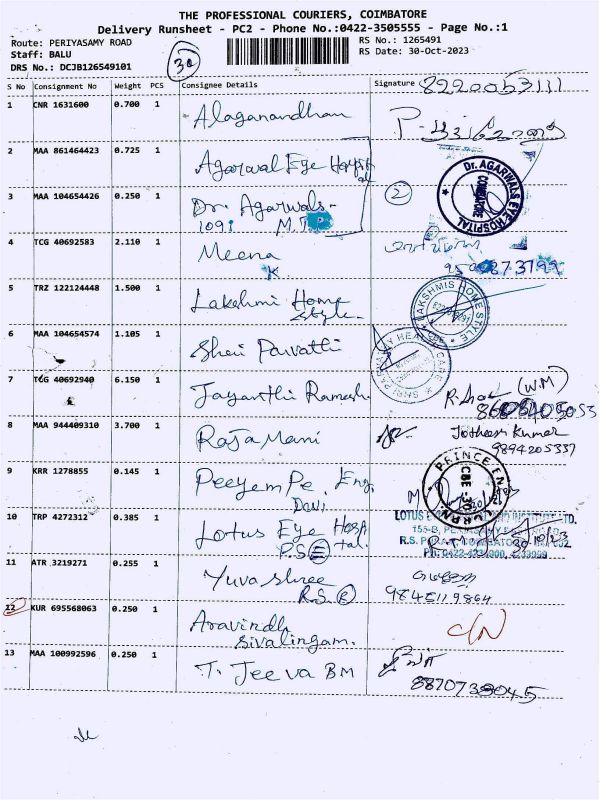 THE PROFESSIONAL COURIERS, COIMBATORE
Delivery Runsheet - PC2 - Phone No.:0422-3505555 - Page No.:1
Route: PERIYASAMY ROAD
Staff: BALU
DRS No.: DCJB126549101
30
RS No.: 1265491
RS Date: 30-Oct-2023
S No Consignment No Weight PCS Consignee Details Signature 8220053111
1 CNR 1631600 0.700 1 Alaganandhan
2 MAA 861464423 0.725 1 Agarwal Eye Hospital
3 MAA 104654426 0.250 1 Dr. Agarwals-
1091 M.T
2
Dr. AGARWALS EYE HOSPITAL
COIMBATORE
4 TCG 40692583 2.110 1 Meena
K
5 TRZ 122124448 1.500 1 Lakshmi Home
Style.
LAKSHMIS HOME STYLE
6 MAA 104654574 1.105 1 Shri Parvathi
SHRI PARVATHY HEALTH CARE
7 TCG 40692940 6.150 1 Jayanthi Ramesh
(WM)
8 MAA 944409310 3.700 1 Raja Mani
Jothees Kumar
9894205337
9 KRR 1278855 0.145 1 Peeyem Pe. Eng.
Devi
10 TRP 4272312 0.385 1 Lotus Eye Hospital.
R.S (E)
30/10/23
11 ATR 3219271 0.255 1 Yuvashree
R.S (E)
9845119864
12 KUR 695568063 0.250 1 Aravindh
Sivalingam.
C/N
13 MAA 100992596 0.250 1 T. Jeeva BM